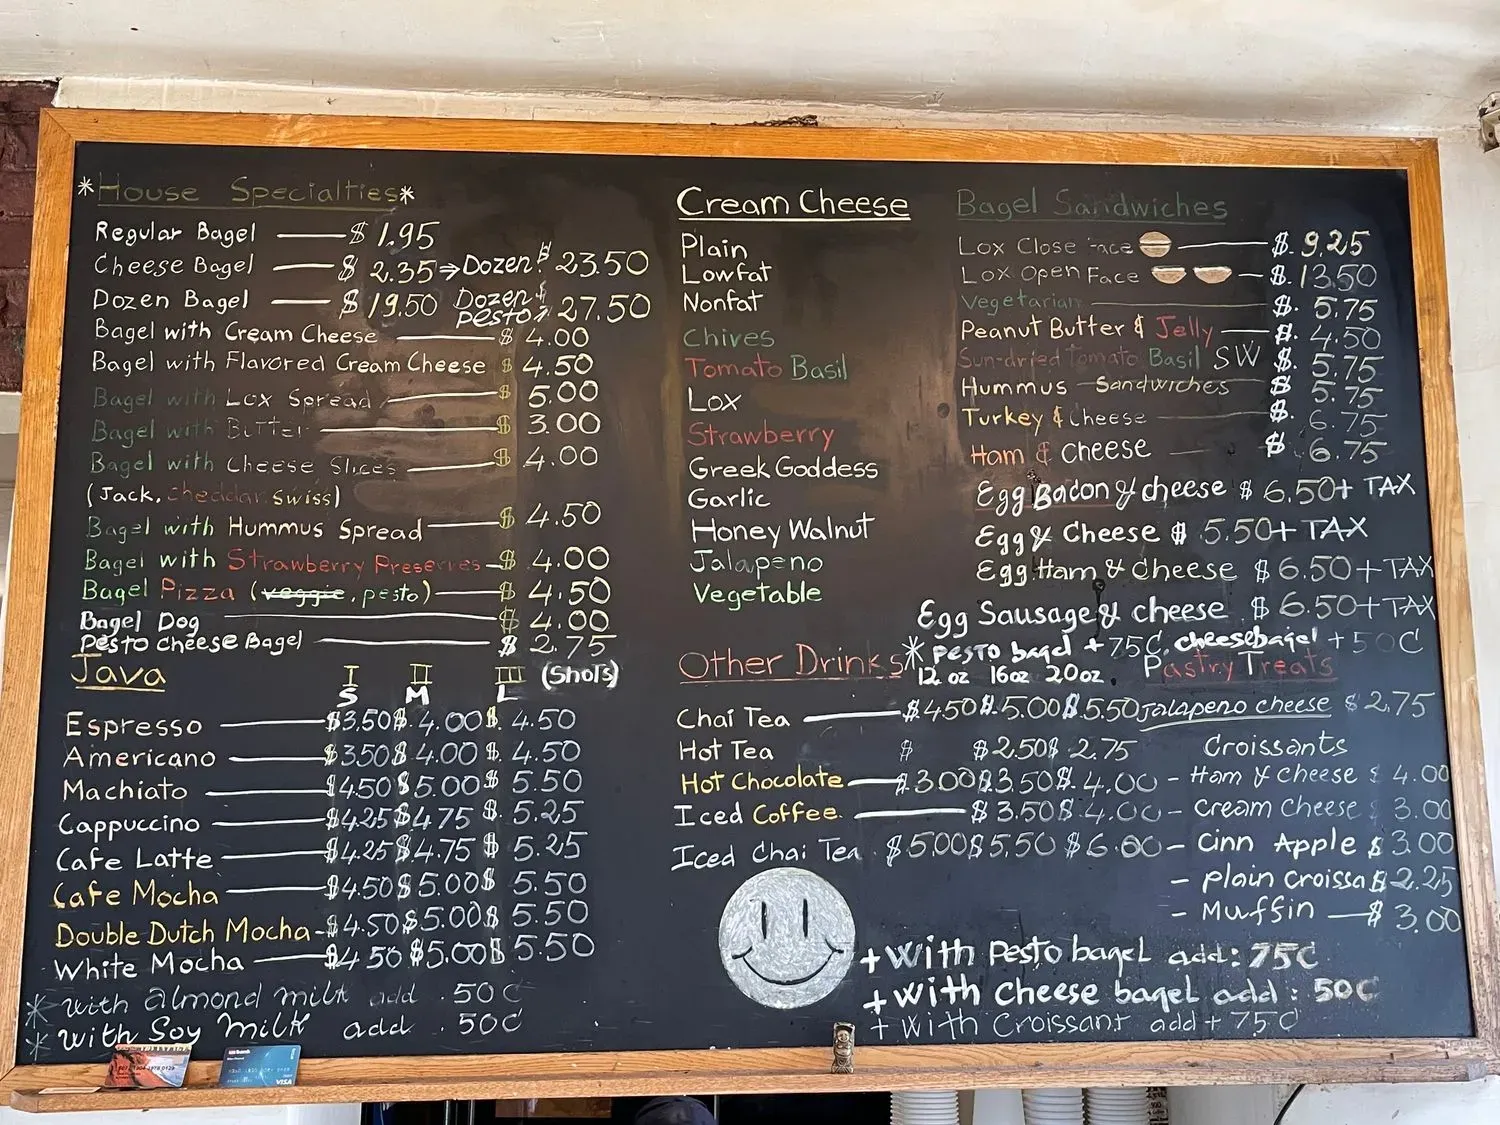 *House Specialties*
Regular Bagel — $1.95
Cheese Bagel — $2.35 ⇒ Dozen: $ 23.50
Dozen Bagel — $19.50 Dozen pesto: $ 27.50
Bagel with Cream Cheese — $4.00
Bagel with Flavored Cream Cheese $4.50
Bagel with Lox Spread — $5.00
Bagel with Butter — $3.00
Bagel with Cheese Slices — $4.00
(Jack, cheddar, swiss)
Bagel with Hummus Spread — $4.50
Bagel with Strawberry Preserves — $4.00
Bagel Pizza (veggie, pesto) — $4.50
Bagel Dog — $4.00
Pesto Cheese Bagel — $2.75
Java I II III (Shots)
S M L
Espresso — $3.50 $4.00 $4.50
Americano — $3.50 $4.00 $4.50
Machiato — $4.50 $5.00 $5.50
Cappuccino — $4.25 $4.75 $5.25
Cafe Latte — $4.25 $4.75 $5.25
Cafe Mocha — $4.50 $5.00 $5.50
Double Dutch Mocha — $4.50 $5.00 $5.50
White Mocha — $4.50 $5.00 $5.50
* with almond milk add .50¢
* with Soy Milk add .50¢
Cream Cheese
Plain
Lowfat
Nonfat
Chives
Tomato Basil
Lox
Strawberry
Greek Goddess
Garlic
Honey Walnut
Jalapeno
Vegetable
Bagel Sandwiches
Lox Close Face — $.9.25
Lox Open Face — $.13.50
Vegetarian — $.5.75
Peanut Butter & Jelly — $.4.50
Sun-dried Tomato Basil SW $.5.75
Hummus Sandwiches $.5.75
Turkey & Cheese — $.6.75
Ham & Cheese — $6.75
Egg Bacon & cheese $6.50 + TAX
Egg & Cheese $5.50 + TAX
Egg Ham & Cheese $6.50 + TAX
Egg Sausage & cheese $6.50 + TAX
* pesto bagel + 75¢, cheesebagel + 50¢
Other Drinks
12 oz 16oz 20oz
Chai Tea — $.4.50 $.5.00 $5.50
Hot Tea $ $2.50 $2.75
Hot Chocolate — $.3.00 $3.50 $.4.00
Iced Coffee — $3.50 $4.00
Iced Chai Tea $5.00 $5.50 $6.00
Pastry Treats
Jalapeno cheese $2.75
Croissants
- Ham & cheese $4.00
- Cream Cheese $3.00
- Cinn Apple $3.00
- plain croissa $2.25
- Muffin — $3.00
+ with Pesto bagel add: 75¢
+ with Cheese bagel add: 50¢
+ with Croissant add + 75¢
VISA